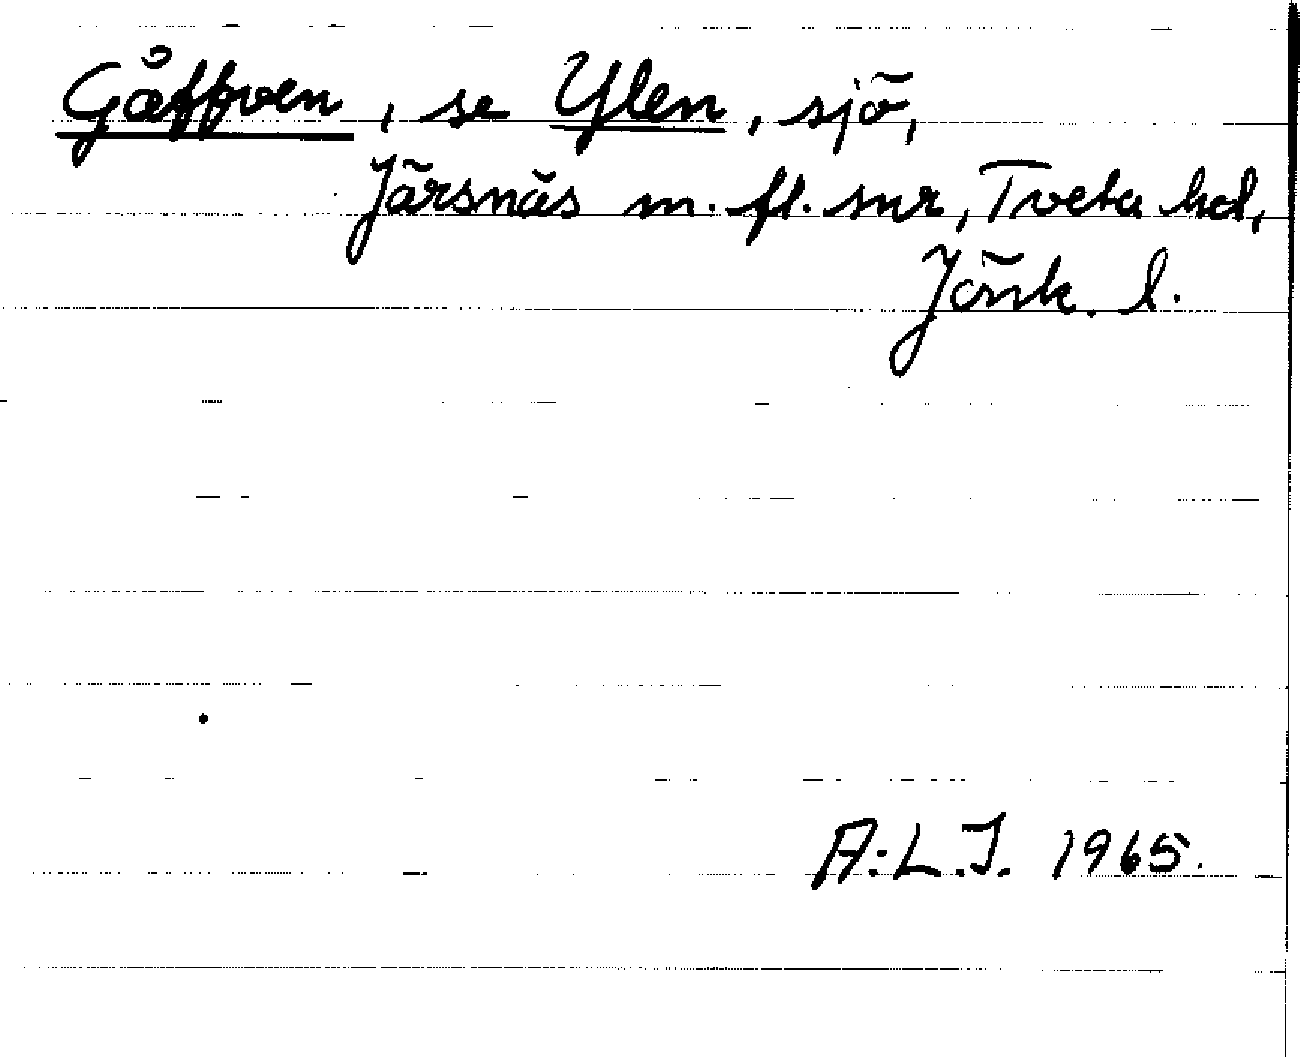 Gåffven, se Ylen, sjö,
Järsnäs m. fl. snr, Tveta hd,
Jönk. l.
A.L.J. 1965.